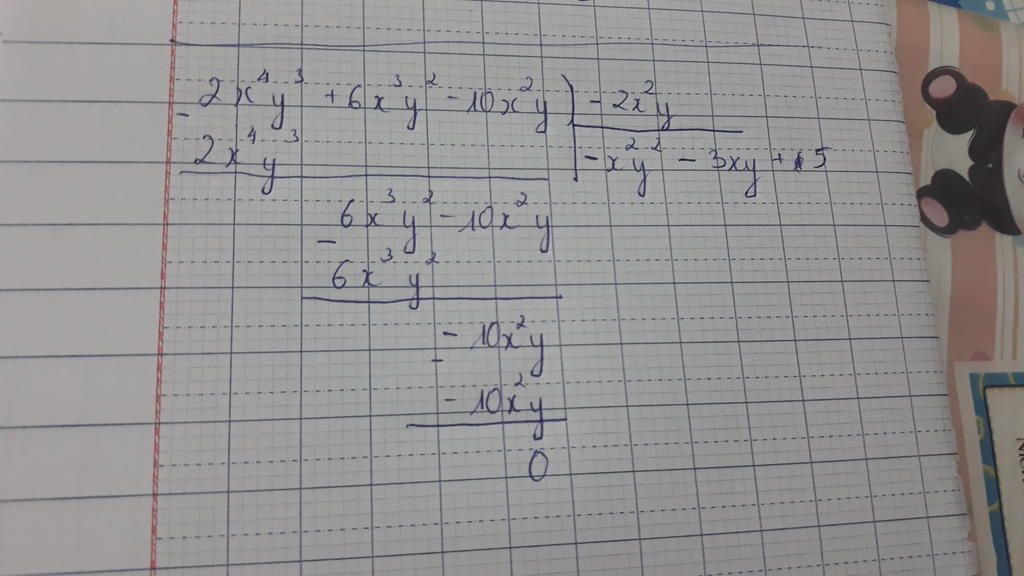 2x⁴y³ + 6x³y² - 10x²y | - 2x²y
-
2x⁴y³ | - x²y² - 3xy + 5
6x³y² - 10x²y
-
6x³y²
- 10x²y
-
- 10x²y
0